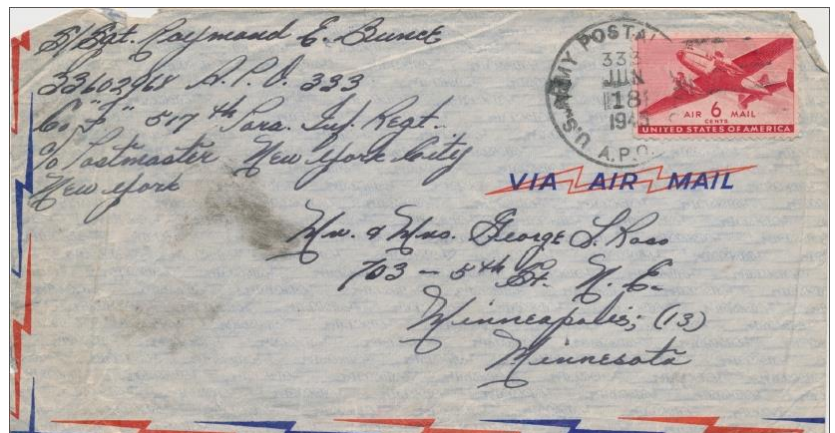 S/Sgt. Raymond E. Bunce
33602968 A.P.O. 333
Co "F" 517th Para. Inf. Regt.
c/o Postmaster New York City
New York
U.S. ARMY POSTAL
333
JUN
18
194
A.P.O.
AIR 6 MAIL
CENTS
UNITED STATES OF AMERICA
VIA AIR MAIL
Mr. & Mrs. George L. Ross
703 - 5th St. N. E.
Minneapolis, (13)
Minnesota